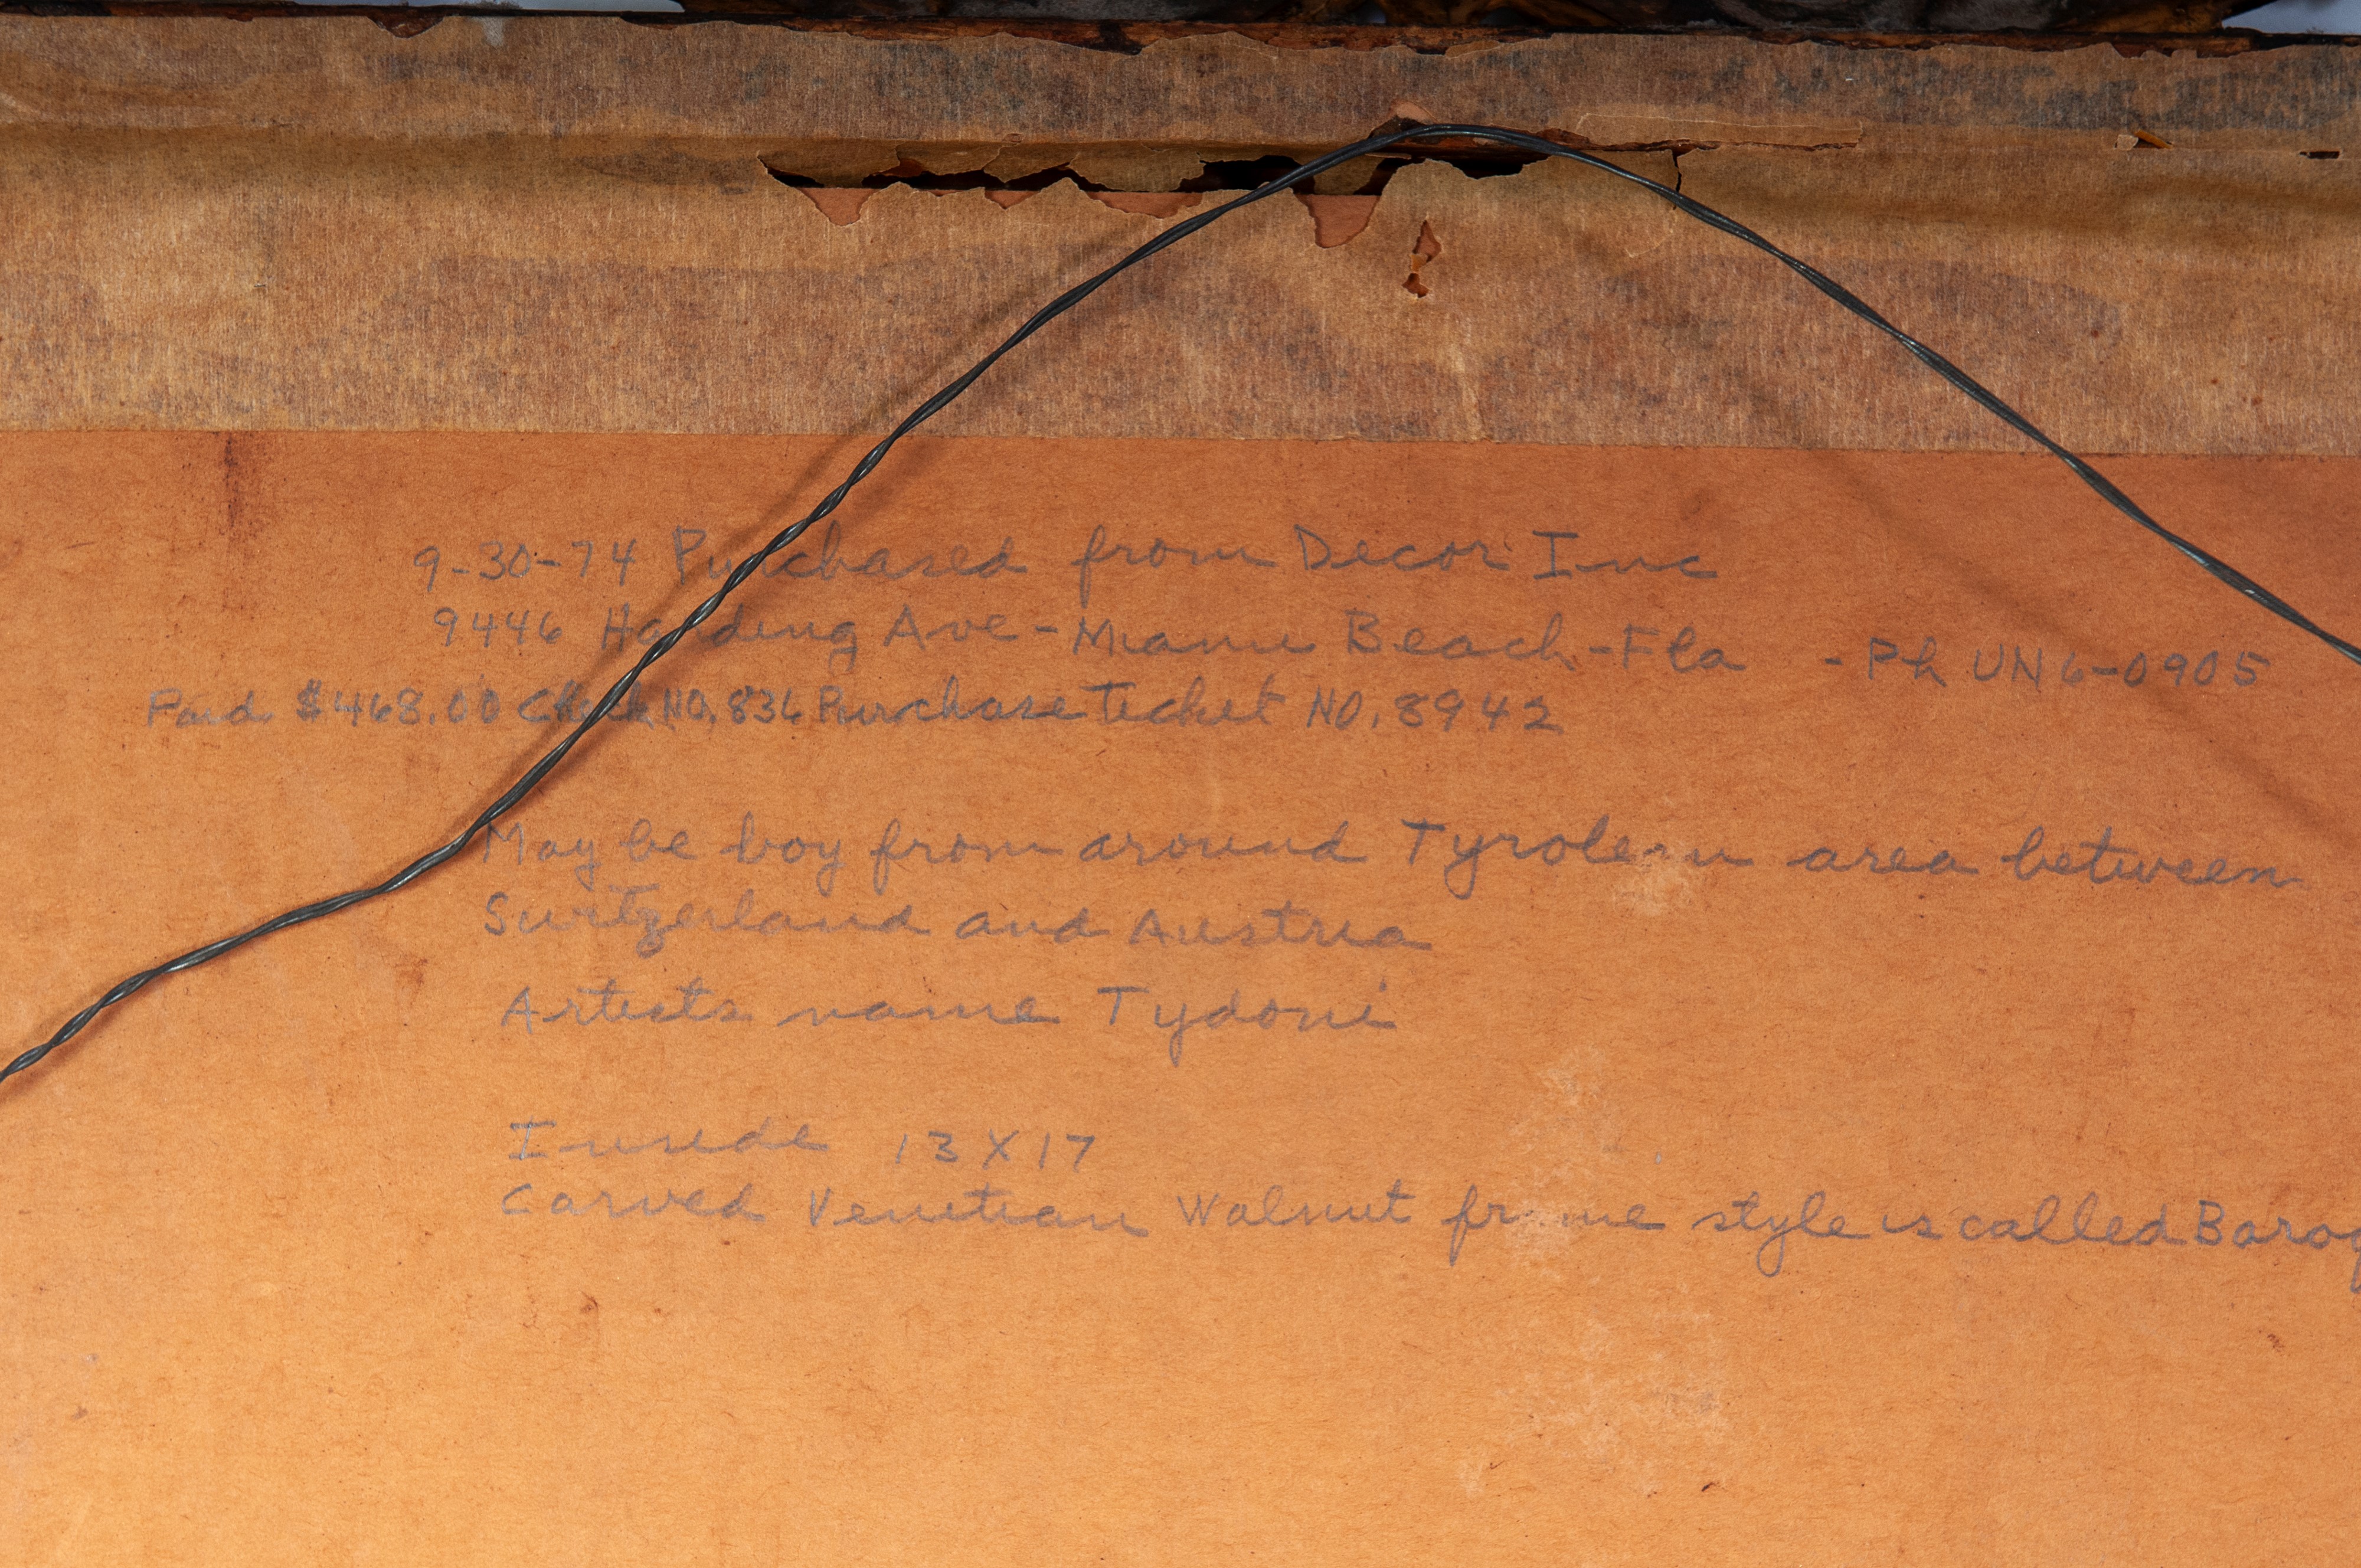 9-30-74 Purchased from Decor Inc
9446 Harding Ave - Miami Beach - Fla - Ph UN6-0905
Paid $468.00 Check NO. 836 Purchase Ticket NO. 8942
May be boy from around Tyrolean area between
Switzerland and Austria
Artists name Tydoni
Inside 13 X 17
Carved Venetian Walnut frame style is called Baroq